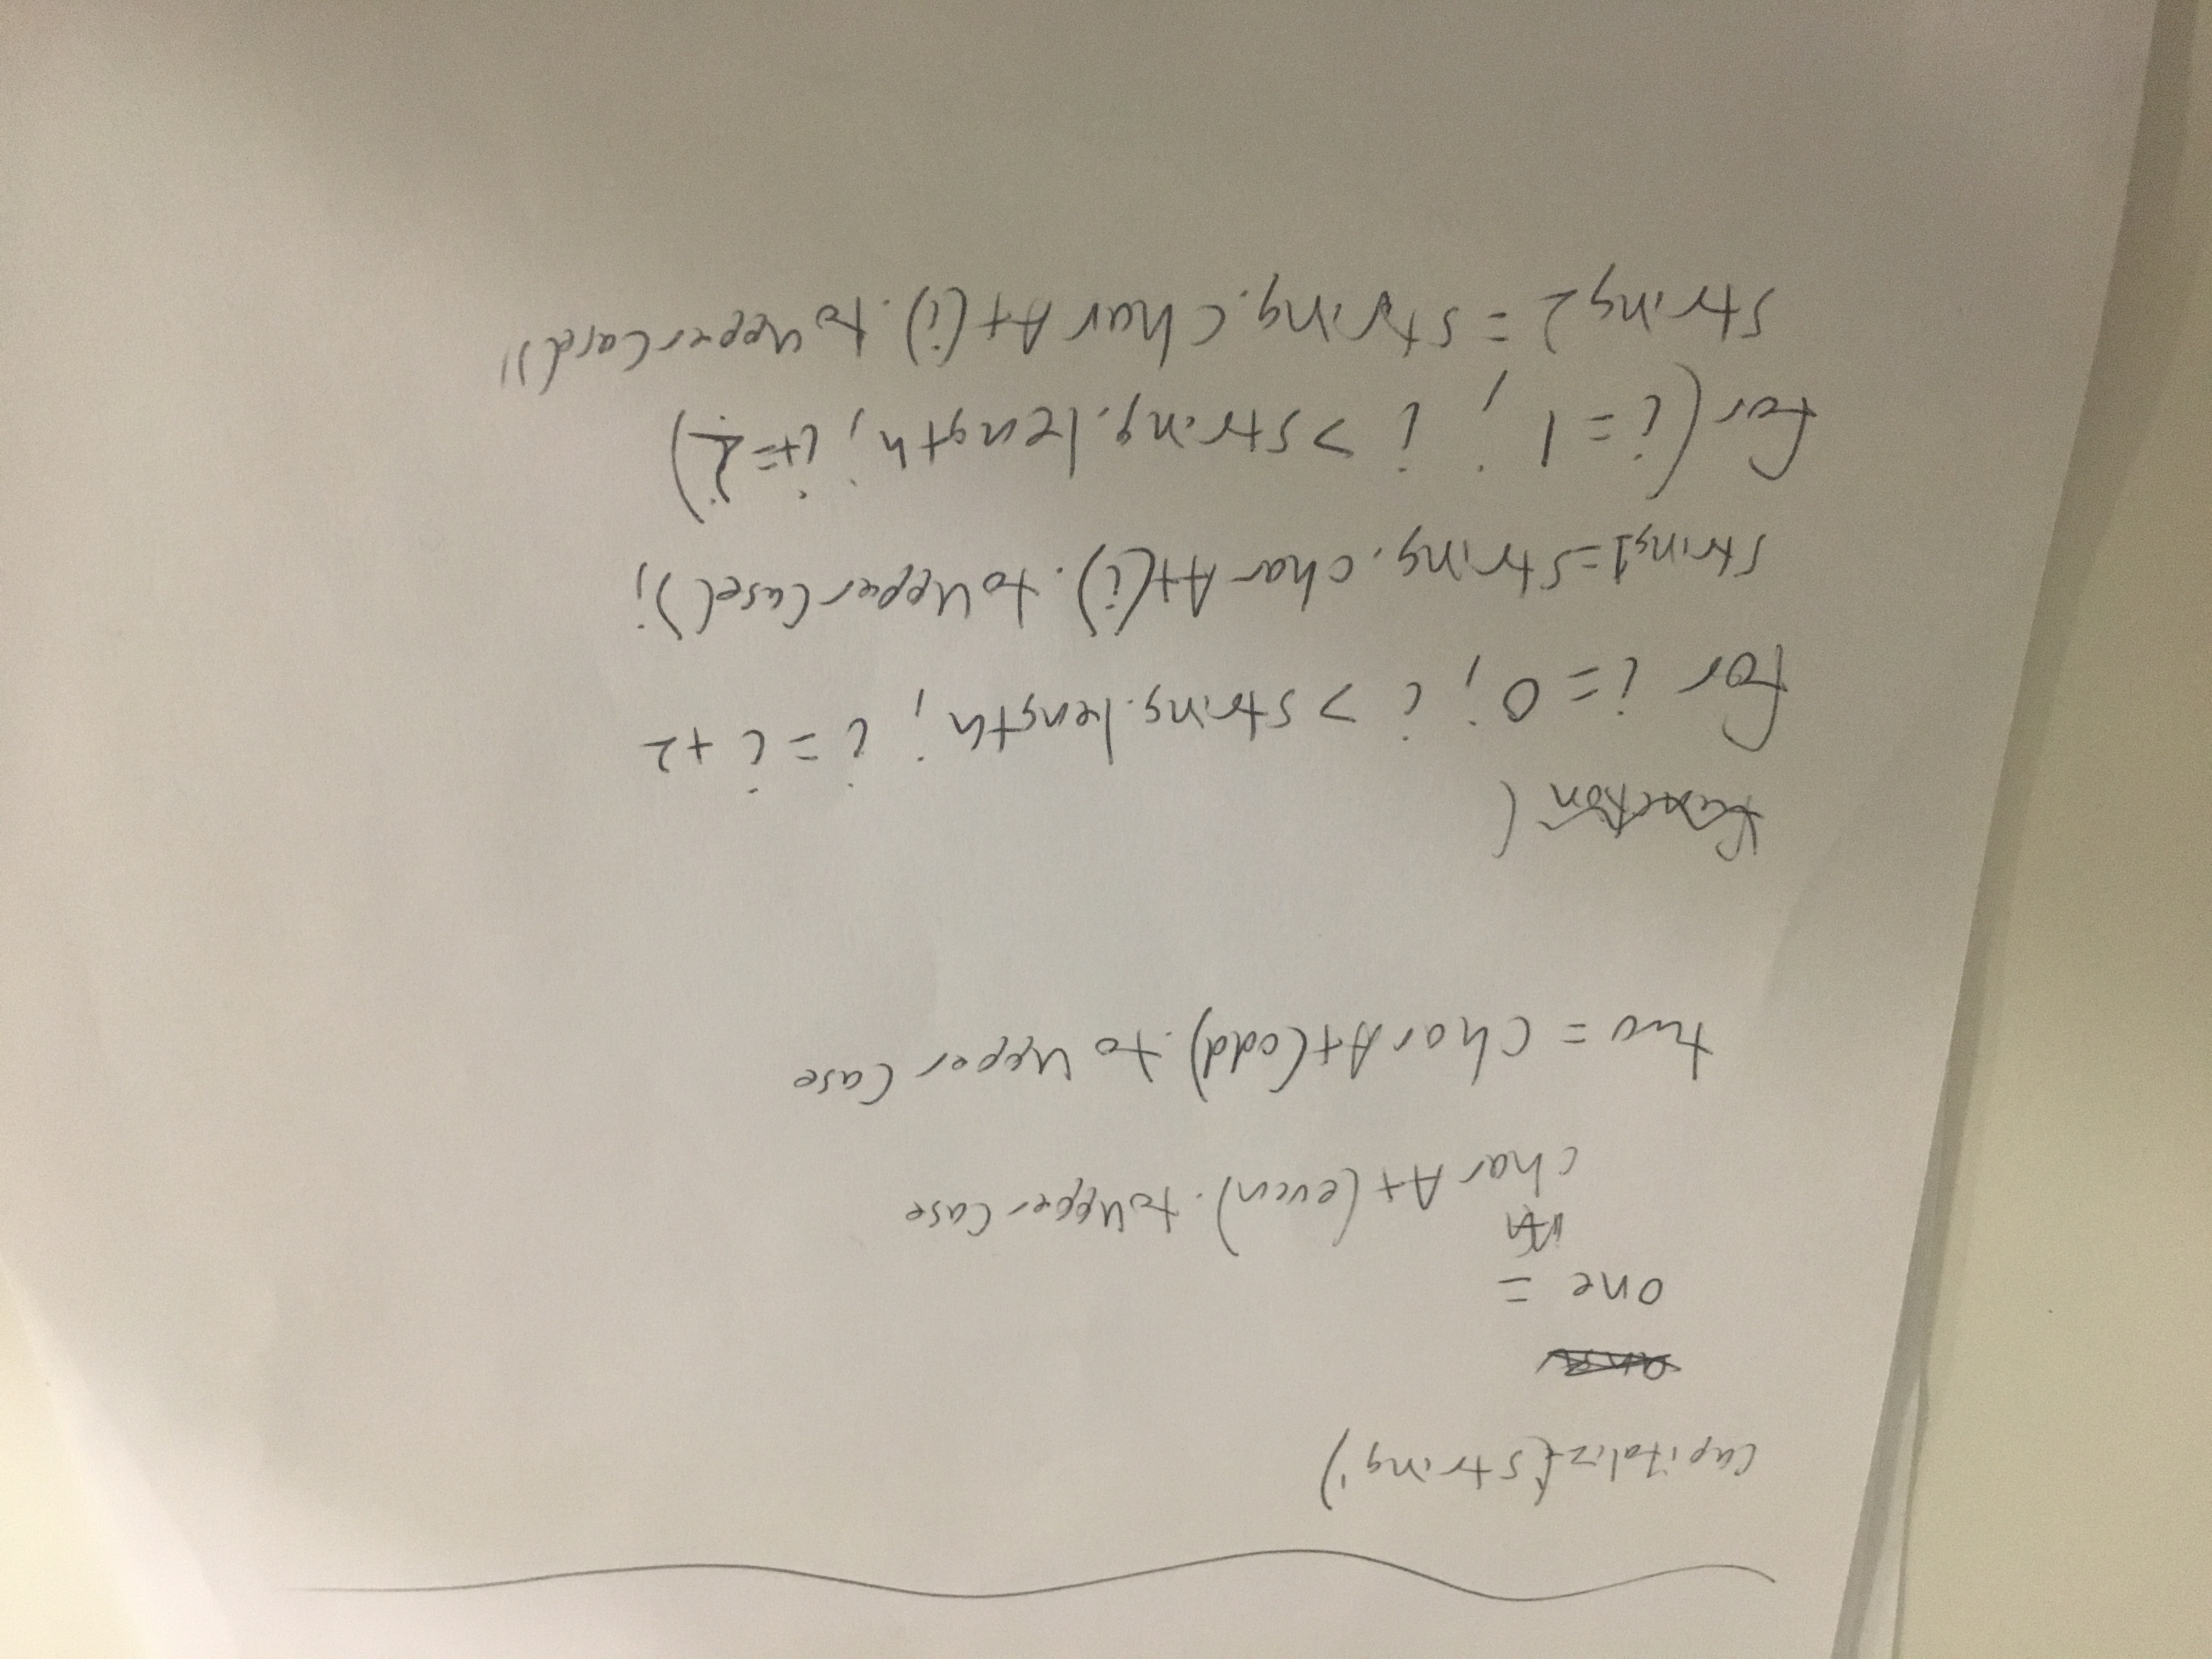 capitalize(string)
one =
charAt(even).toUpperCase
two = charAt(odd).toUpperCase
function (
for i = 0; i > string.length; i = i +2
string1=string.charAt(i).toUpperCase();
for(i=1; i >string.length; i+=2)
string2=string.charAt(i).toUpperCase();